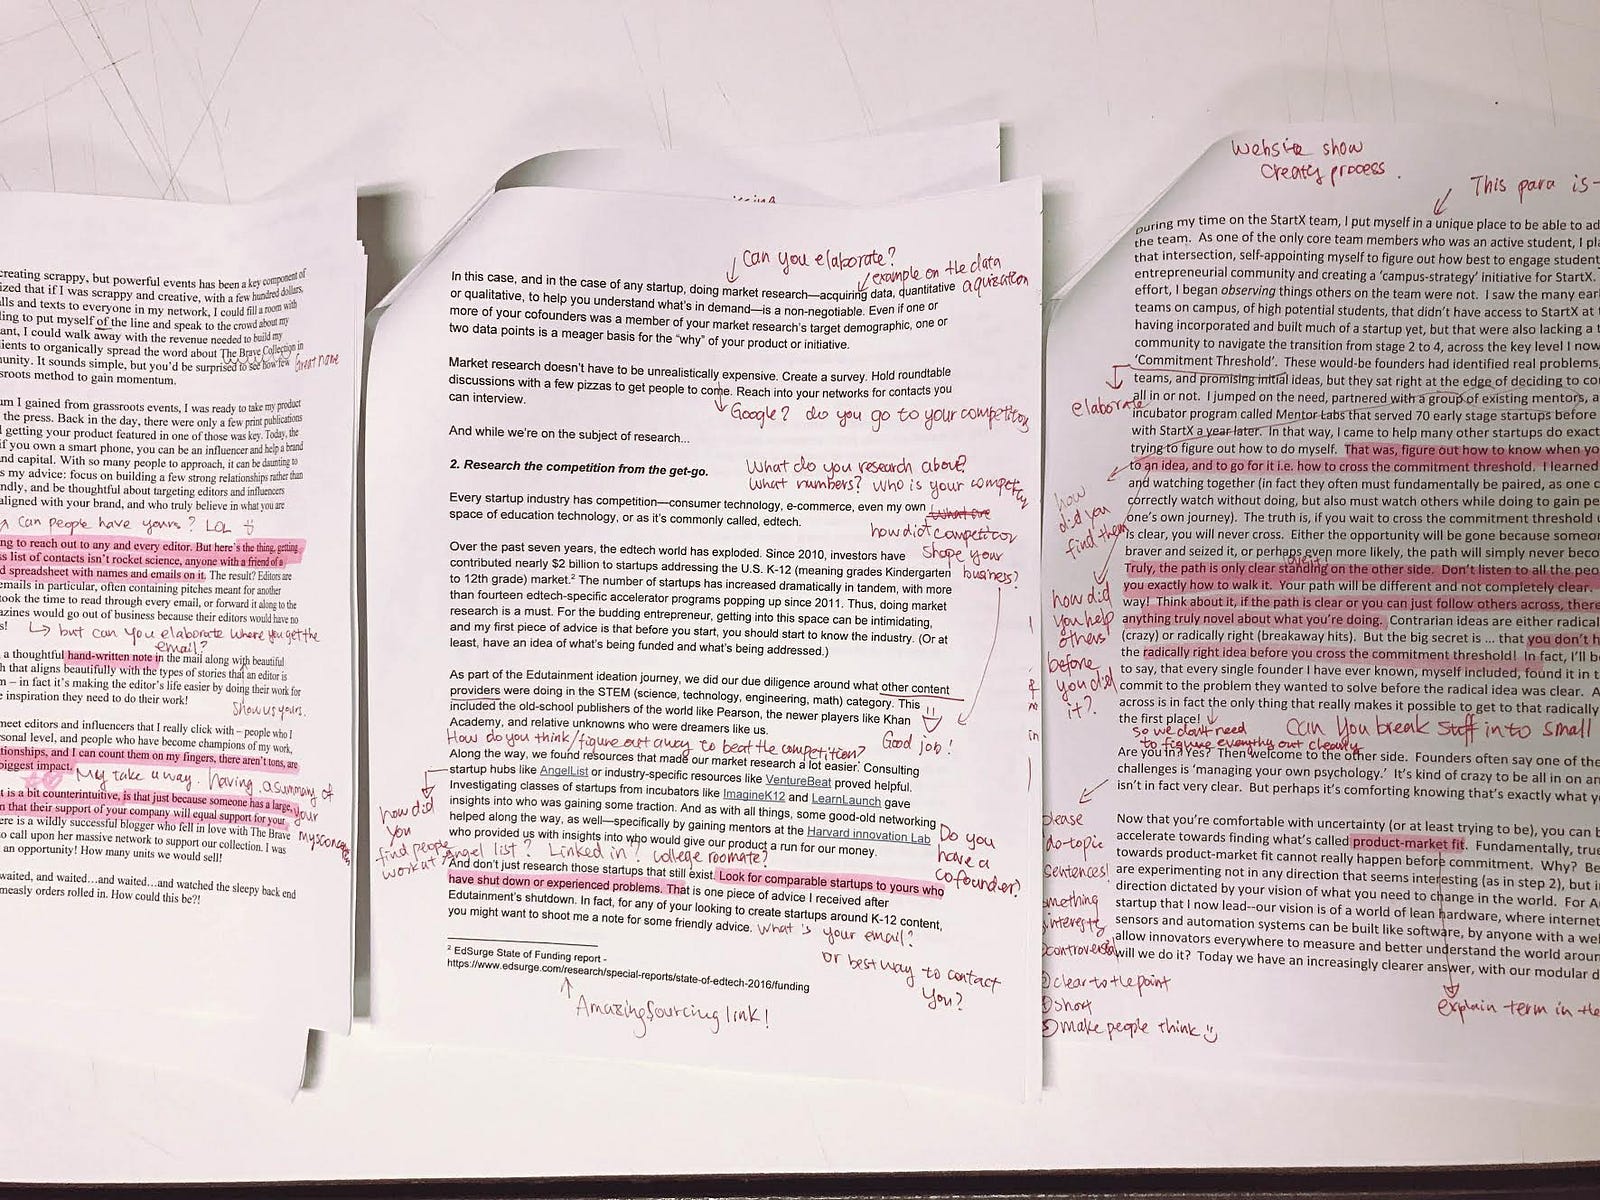 creating scrappy, but powerful events has been a key component of
ized that if I was scrappy and creative, with a few hundred dollars,
lls and texts to everyone in my network, I could fill a room with
ling to put myself of the line and speak to the crowd about my
ant, I could walk away with the revenue needed to build my
lients to organically spread the word about The Brave Collection in
unity. It sounds simple, but you'd be surprised to see how few
Great name
sroots method to gain momentum.
um I gained from grassroots events, I was ready to take my product
the press. Back in the day, there were only a few print publications
getting your product featured in one of those was key. Today, the
if you own a smart phone, you can be an influencer and help a brand
nd capital. With so many people to approach, it can be daunting to
s my advice: focus on building a few strong relationships rather than
ndly, and be thoughtful about targeting editors and influencers
aligned with your brand, and who truly believe in what you are
Can people have yours? LOL
ng to reach out to any and every editor. But here's the thing, getting
ss list of contacts isn't rocket science, anyone with a friend of a
d spreadsheet with names and emails on it. The result? Editors are
emails in particular, often containing pitches meant for another
took the time to read through every email, or forward it along to the
azines would go out of business because their editors would have no
s!
but can you elaborate where you get the
email?
a thoughtful hand-written note in the mail along with beautiful
h that aligns beautifully with the types of stories that an editor is
n – in fact it's making the editor's life easier by doing their work for
e inspiration they need to do their work!
Show us yours.
meet editors and influencers that I really click with – people who I
rsonal level, and people who have become champions of my work,
tionships, and I can count them on my fingers, there aren't tons, are
biggest impact.
My take away. having a summary of
t is a bit counterintuitive, is that just because someone has a large,
your
n that their support of your company will equal support for your
ere is a wildly successful blogger who fell in love with The Brave
o call upon her massive network to support our collection. I was
an opportunity! How many units we would sell!
waited, and waited…and waited…and watched the sleepy back end
measly orders rolled in. How could this be?!
can you elaborate?
example on the data
In this case, and in the case of any startup, doing market research—acquiring data, quantitative
aquization
or qualitative, to help you understand what's in demand—is a non-negotiable. Even if one or
more of your cofounders was a member of your market research's target demographic, one or
two data points is a meager basis for the "why" of your product or initiative.
Market research doesn't have to be unrealistically expensive. Create a survey. Hold roundtable
discussions with a few pizzas to get people to come. Reach into your networks for contacts you
can interview.
Google? do you go to your competitor
And while we're on the subject of research...
2. Research the competition from the get-go.
What do you research about?
What numbers? Who is your
Every startup industry has competition—consumer technology, e-commerce, even my own
What are
space of education technology, or as it's commonly called, edtech.
how did competitor
shape your
business?
Over the past seven years, the edtech world has exploded. Since 2010, investors have
contributed nearly $2 billion to startups addressing the U.S. K-12 (meaning grades Kindergarten
to 12th grade) market.² The number of startups has increased dramatically in tandem, with more
than fourteen edtech-specific accelerator programs popping up since 2011. Thus, doing market
research is a must. For the budding entrepreneur, getting into this space can be intimidating,
and my first piece of advice is that before you start, you should start to know the industry. (Or at
least, have an idea of what's being funded and what's being addressed.)
As part of the Edutainment ideation journey, we did our due diligence around what other content
providers were doing in the STEM (science, technology, engineering, math) category. This
included the old-school publishers of the world like Pearson, the newer players like Khan
Academy, and relative unknowns who were dreamers like us.
Good job!
How do you think/figure out away to beat the competition?
Along the way, we found resources that made our market research a lot easier. Consulting
startup hubs like AngelList or industry-specific resources like VentureBeat proved helpful.
Investigating classes of startups from incubators like ImagineK12 and LearnLaunch gave
insights into who was gaining some traction. And as with all things, some good-old networking
helped along the way, as well—specifically by gaining mentors at the Harvard innovation Lab
who provided us with insights into who would give our product a run for our money.
how did
you
find people
work at Angel list? Linked in? College roomate?
Do you
have a
cofounder?
And don't just research those startups that still exist. Look for comparable startups to yours who
have shut down or experienced problems. That is one piece of advice I received after
Edutainment's shutdown. In fact, for any of your looking to create startups around K-12 content,
you might want to shoot me a note for some friendly advice.
What's your email?
or best way to contact
you?
² EdSurge State of Funding report -
https://www.edsurge.com/research/special-reports/state-of-edtech-2016/funding
Amazing Sourcing link!
Website show
process.
This para is
During my time on the StartX team, I put myself in a unique place to be able to ad
the team. As one of the only core team members who was an active student, I pl
that intersection, self-appointing myself to figure out how best to engage student
entrepreneurial community and creating a 'campus-strategy' initiative for StartX.
effort, I began observing things others on the team were not. I saw the many earl
teams on campus, of high potential students, that didn't have access to StartX at t
having incorporated and built much of a startup yet, but that were also lacking a t
community to navigate the transition from stage 2 to 4, across the key level I now
'Commitment Threshold'. These would-be founders had identified real problems,
teams, and promising initial ideas, but they sat right at the edge of deciding to co
elaborate
all in or not. I jumped on the need, partnered with a group of existing mentors, a
incubator program called Mentor Labs that served 70 early stage startups before
with StartX a year later. In that way, I came to help many other startups do exact
trying to figure out how to do myself. That was, figure out how to know when yo
to an idea, and to go for it i.e. how to cross the commitment threshold. I learned
and watching together (in fact they often must fundamentally be paired, as one c
correctly watch without doing, but also must watch others while doing to gain pe
one's own journey). The truth is, if you wait to cross the commitment threshold u
is clear, you will never cross. Either the opportunity will be gone because someo
braver and seized it, or perhaps even more likely, the path will simply never beco
how
did you
find them
Truly, the path is only clear standing on the other side. Don't listen to all the peo
you exactly how to walk it. Your path will be different and not completely clear.
way! Think about it, if the path is clear or you can just follow others across, there
anything truly novel about what you're doing. Contrarian ideas are either radical
(crazy) or radically right (breakaway hits). But the big secret is … that you don't h
the radically right idea before you cross the commitment threshold! In fact, I'll b
to say, that every single founder I have ever known, myself included, found it in t
commit to the problem they wanted to solve before the radical idea was clear. A
across is in fact the only thing that really makes it possible to get to that radically
the first place!
how did
you help
others
before
you did
it?
so we don't need
to figure everythg out clearly
Can you break stuff into small
Are you in? Yes? Then welcome to the other side. Founders often say one of the
challenges is 'managing your own psychology.' It's kind of crazy to be all in on an
isn't in fact very clear. But perhaps it's comforting knowing that's exactly what y
Now that you're comfortable with uncertainty (or at least trying to be), you can b
accelerate towards finding what's called product-market fit. Fundamentally, true
towards product-market fit cannot really happen before commitment. Why? Be
are experimenting not in any direction that seems interesting (as in step 2), but i
direction dictated by your vision of what you need to change in the world. For A
startup that I now lead--our vision is of a world of lean hardware, where internet
sensors and automation systems can be built like software, by anyone with a wel
allow innovators everywhere to measure and better understand the world aroun
will we do it? Today we have an increasingly clearer answer, with our modular d
please
do-topic
sentences!
controversial
clear to the point
short
make people think
explain term in the